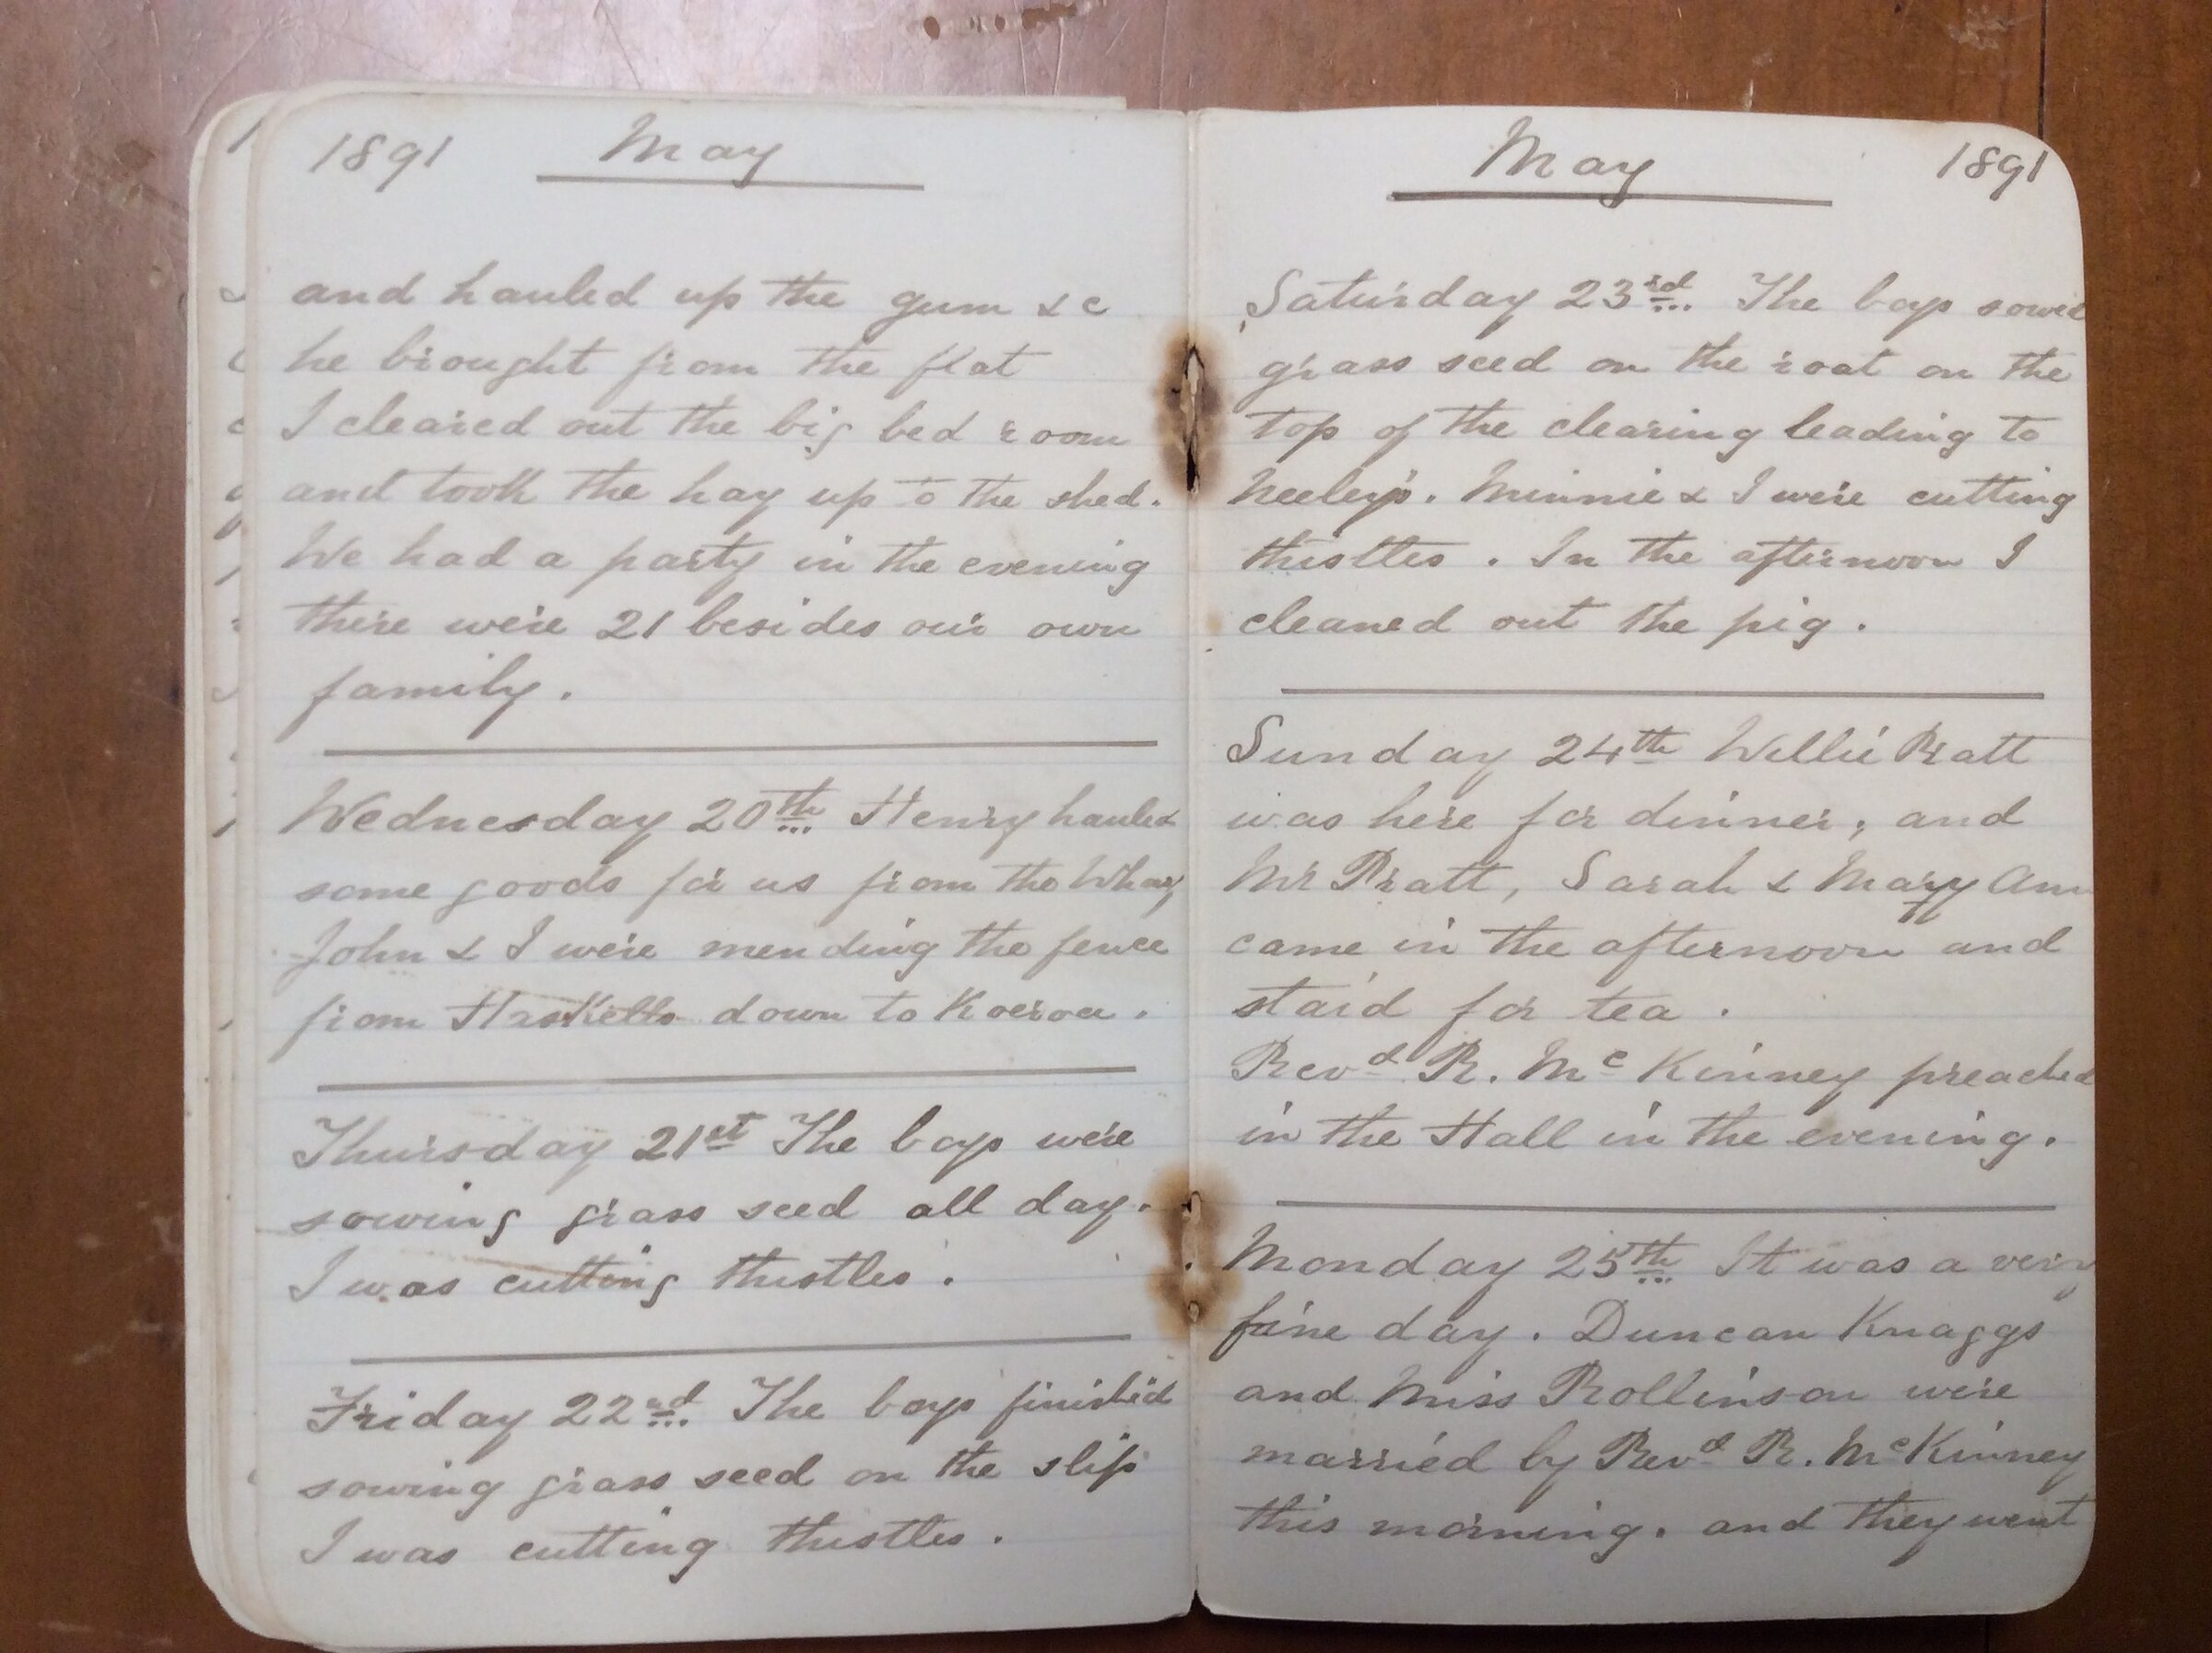 1891 May
and hauled up the gum &c
he brought from the flat
I cleared out the big bed room
and took the hay up to the shed.
We had a party in the evening
there were 21 besides our own
family.
Wednesday 20th Henry hauled
some goods for us from the Wharf
John & I were mending the fence
from Haskells down to Koeroa.
Thursday 21st The boys were
sowing grass seed all day.
I was cutting thistles.
Friday 22nd. The boys finished
sowing grass seed on the slip
I was cutting thistles.
May 1891
Saturday 23rd. The boys sowed
grass seed on the roat on the
top of the clearing leading to
Neeley's. Minnie & I were cutting
thistles. In the afternoon I
cleaned out the pig.
Sunday 24th Willie Pratt
was here for dinner, and
Mr Pratt, Sarah & Mary Ann
came in the afternoon and
staid for tea.
Revd R. McKinney preached
in the Hall in the evening.
Monday 25th It was a very
fine day. Duncan Knaggs
and Miss Rollinson were
married by Revd R. McKinney
this morning. and they went